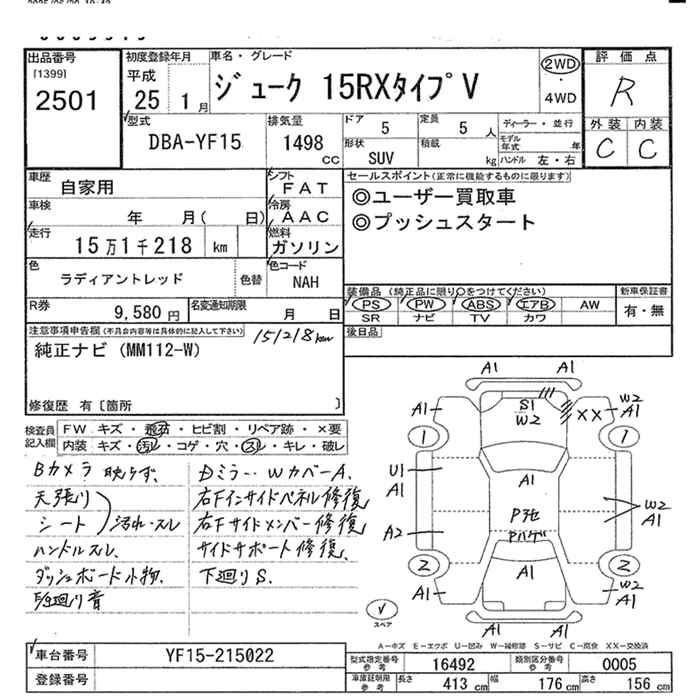 出品番号
[1399]
2501
初度登録年月
平成
25 1月
車名・グレード
ジューク 15RXタイプV
2WD
・
4WD
評価点
R
外装 内装
C C
型式
DBA-YF15
排気量
1498
CC
ドア
5
定員
5 人
ディーラー・並行
モデル年式 年
形状
SUV
積載
kg
ハンドル 左・右
車歴
自家用
シフト
FAT
車検
年 月( 日)
冷房
AAC
走行
15万1千218 km
燃料
ガソリン
色
ラディアントレッド
色替
色コード
NAH
R券
9,580 円
名変通知期限
月 日
セールスポイント(正常に機能するものに限ります)
◎ユーザー買取車
◎プッシュスタート
装備品(純正品に限り○をつけてください)
PS PW ABS エアB AW
SR ナビ TV カワ
新車保証書
有・無
後日品
注意事項申告欄(不具合内容等は具体的に記入して下さい)
151218km
純正ナビ (MM112-W)
修復歴 有〔箇所 〕
検査員
記入欄
FW キズ・飛石・ヒビ割・リペア跡・×要
内装 キズ・汚レ・コゲ・穴・スレ・キレ・破レ
Bカメラ 映らず、
天張り
シート
汚れ・スレ
ハンドルスレ、
ダッシュボード小物、
Dミラー・Wカバー A、
右Fインサイドパネル修復
右Fサイドメンバー修復
サイドサポート修復、
下廻りS、
A1 A1
S1
W2
A1
XX
W2
A1
1 1
U1
A1
A1
P池
Pハゲ
W2
A1
A2
2 2
A1
A1
W2
A1
A1 A1
✓
スペア
A－キズ E－エクボ U－凹み W－補修跡 S－サビ C－腐食 XX－交換済
車台番号
YF15-215022
登録番号
型式指定番号
参考
16492
類別区分番号
参考
0005
車庫証明用
参考
長さ
413 cm
幅
176 cm
高さ
156 cm